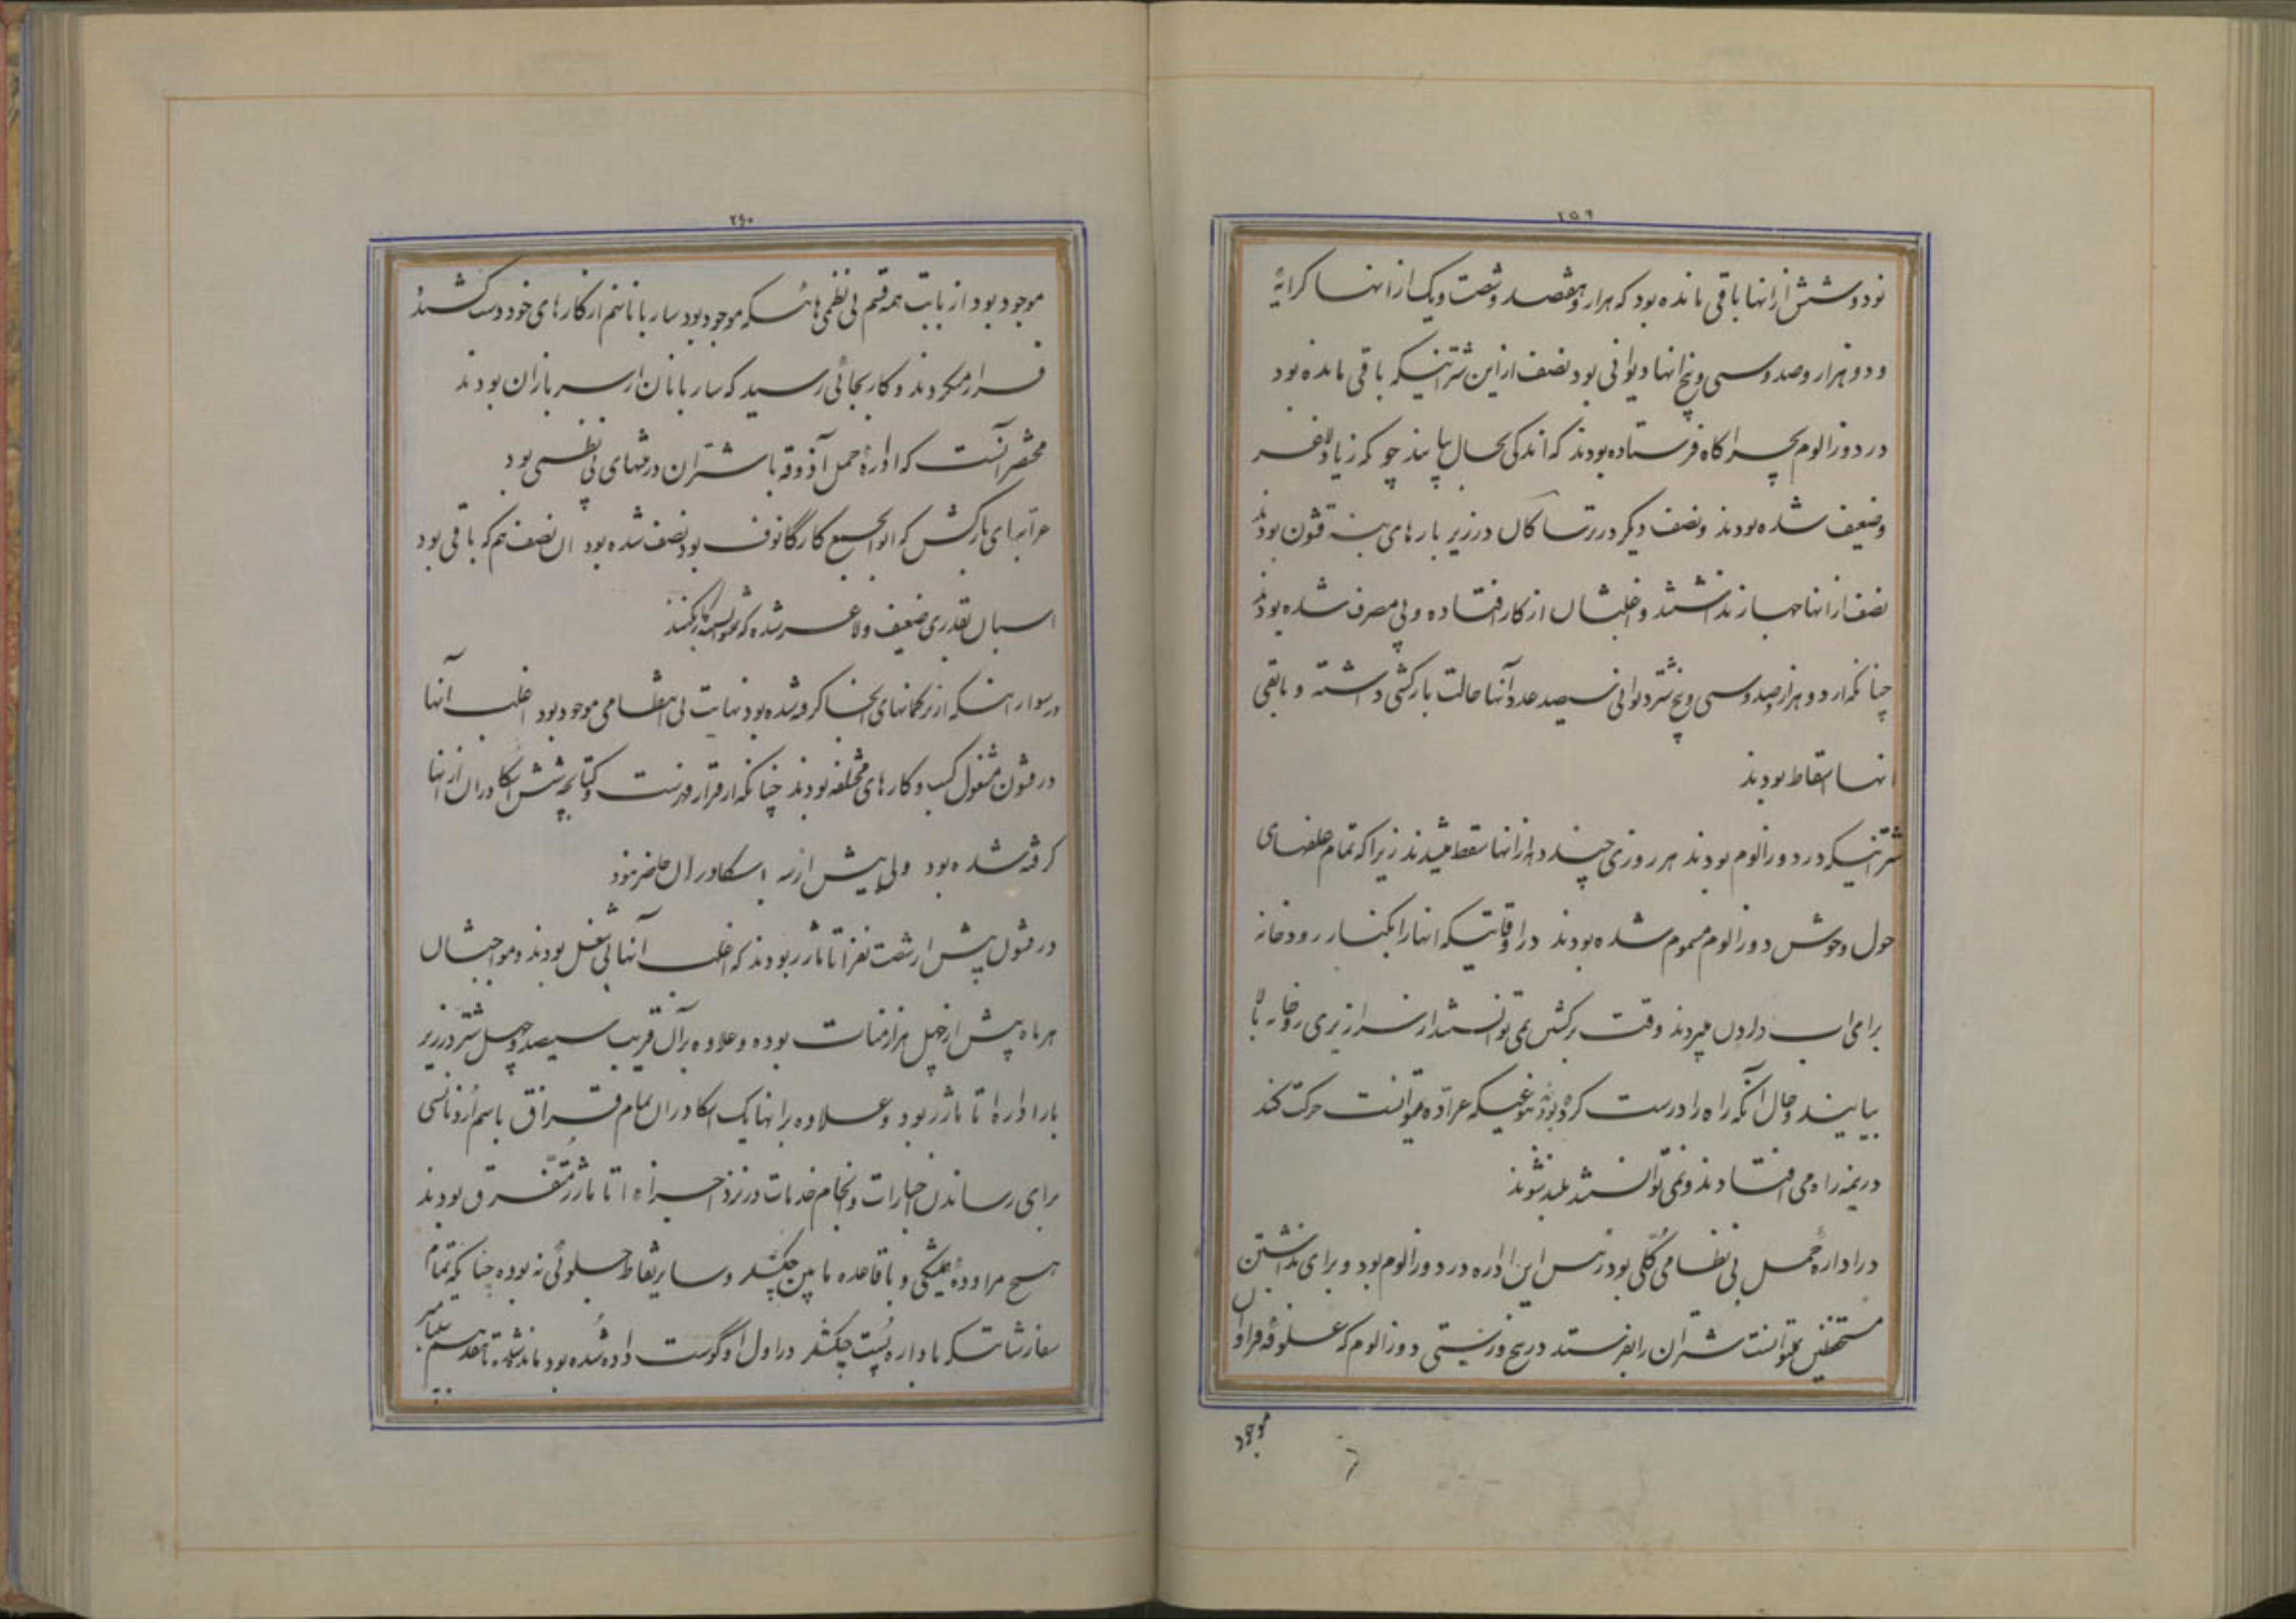 ۲۵۹
نود و شش از انها باقی مانده بود که هزار و هفتصد و شصت و یک از انها کرایهٔ
و دو هزار و صد و سی و پنج انها دیوانی بود نصف از این شترانیکه باقی مانده بود
در دوزالوم بچراگاه فرستاده بودند که اندکی بحال بیایند چو که زیاد لاغر
و ضعیف شده بودند و نصف دیگر در رتساکال در زیر بارهای بنه قشون بودند
نصف از انها جهاز نداشتند و اغلبشان از کار افتاده و بی مصرف شده بودند
چنانکه از دو هزار و صد و سی و پنج شتر دیوانی سیصد عدد آنها حالت بارکشی داشته و بابقی
انها اسقاط بودند
شترانیکه در دوزالوم بودند هر روزی چند دار از انها سقط میشدند زیرا که تمام علفهای
حول و حوش دوزالوم مسموم شده بودند در اوقاتیکه انها را بکنار رودخانه
برای اب دادن میبردند وقت برگشتن نمی توانستند از سرازیری رودخانه بالا
بیایند و حال آنکه راه را درست کرده بودند بنوعیکه عراده میتوانست حرکت کند
در نیمه راه می افتادند و نمی توانستند بلند شوند
در ادارهٔ حمل بی نظامی کُلی بود رئیس این اداره در دوزالوم بود و برای نداشتن
مستحفظین نمیتوانست شتران را بفرستد در پنج ورستی دوزالوم که علوفه فراوان
موجود
۲۶۰
موجود بود از بابت همه قسم بی نظمی هائیکه موجود بود ساربانان هم از کارهای خود دست کشیده
فرار میکردند و کار بجائی رسید که ساربانان از سربازان بودند
مختصر آنست که ادارهٔ حمل آذوقه با شتران در منتهای بی نظمی بود
عرابهای بارکش که ابوابجمع کارگانوف بود نصف شده بود ان نصف هم که باقی بود
اسبان بقدری ضعیف و لاغر شده که نمیتوانستند کار بکنند
در سوارانیکه از ترکمانهای انجا گرفته شده بود نهایت بی انتظامی موجود بود اغلب آنها
در قشون مشغول کسب و کارهای مختلفه بودند چنانکه از قرار فهرست و کتابچه شش اسکادران از انها
گرفته شده بود ولی بیش از سه اسکادران حاضر نبود
در قشون بیش از شصت نفر اتاماژر بودند که اغلب آنها بی شغل بودند و مواجبشان
هر ماه بیش از چهل هزار منات بوده و علاوه بر آن قریب سیصد و چهل شتر در زیر
بار ادارهٔ اتاماژر بود و علاوه بر انها یک اسکادران تمام قزاق باسم اُردنانسی
برای رساندن اخبارات و انجام خدمات در نزد اجزاء اتاماژر متفّرق بودند
هیچ مراودهٔ همیشگی و با قاعده مابین چکیشلر و سایر نقاط جلوئی نه بوده چنانکه تمام
سفارشاتیکه باداره پُست چکیشلر در اول اوگوست داده شده بود